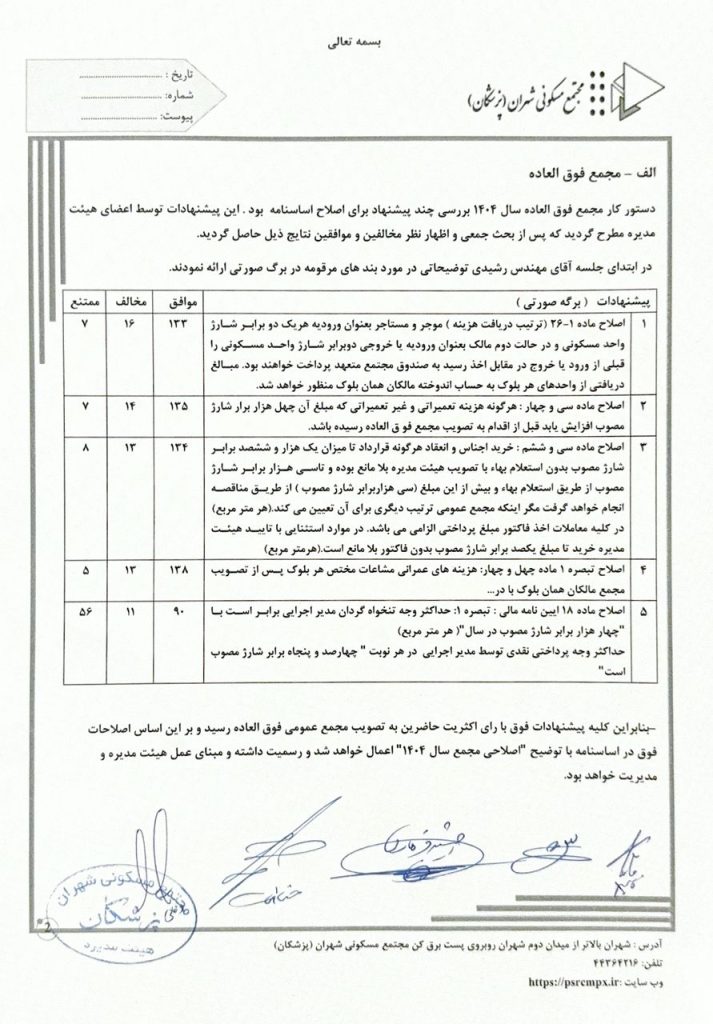 بسمه تعالی
مجتمع مسکونی شهران (پزشکان)
تاریخ : ..............................
شماره: ..............................
پیوست: ..............................
الف – مجمع فوق العاده
دستور کار مجمع فوق العاده سال ۱۴۰۴ بررسی چند پیشنهاد برای اصلاح اساسنامه بود . این پیشنهادات توسط اعضای هیئت
مدیره مطرح گردید که پس از بحث جمعی و اظهار نظر مخالفین و موافقین نتایج ذیل حاصل گردید.
در ابتدای جلسه آقای مهندس رشیدی توضیحاتی در مورد بند های مرقومه در برگ صورتی ارائه نمودند.
پیشنهادات ( برگه صورتی ) موافق مخالف ممتنع
۱ اصلاح ماده ۱-۲۶ (ترتیب دریافت هزینه ) موجر و مستاجر بعنوان ورودیه هریک دو برابر شارژ ۱۳۳ ۱۶ ۷
واحد مسکونی و در حالت دوم مالک بعنوان ورودیه یا خروجی دوبرابر شارژ واحد مسکونی را
قبلی از ورود یا خروج در مقابل اخذ رسید به صندوق مجتمع متعهد پرداخت خواهند بود. مبالغ
دریافتی از واحدهای هر بلوک به حساب اندوخته مالکان همان بلوک منظور خواهد شد.
۲ اصلاح ماده سی و چهار : هرگونه هزینه تعمیراتی و غیر تعمیراتی که مبلغ آن چهل هزار برار شارژ ۱۳۵ ۱۴ ۷
مصوب افزایش یابد قبل از اقدام به تصویب مجمع فو ق العاده رسیده باشد.
۳ اصلاح ماده سی و ششم : خرید اجناس و انعقاد هرگونه قرارداد تا میزان یک هزار و ششصد برابر ۱۳۴ ۱۳ ۸
شارژ مصوب بدون استعلام بهاء با تصویب هیئت مدیره بلا مانع بوده و تاسی هزار برابر شارژ
مصوب از طریق استعلام بهاء و بیش از این مبلغ (سی هزاربرابر شارژ مصوب ) از طریق مناقصه
انجام خواهد گرفت مگر اینکه مجمع عمومی ترتیب دیگری برای آن تعیین می کند.(هر متر مربع)
در کلیه معاملات اخذ فاکتور مبلغ پرداختی الزامی می باشد. در موارد استثنایی با تایید هیئت
مدیره خرید تا مبلغ یکصد برابر شارژ مصوب بدون فاکتور بلا مانع است.(هرمتر مربع)
۴ اصلاح تبصره ۱ ماده چهل و چهار: هزینه های عمرانی مشاعات مختص هر بلوک پس از تصویب ۱۳۸ ۱۳ ۵
مجمع مالکان همان بلوک با در...
۵ اصلاح ماده ۱۸ ایین نامه مالی : تبصره ۱: حداکثر وجه تنخواه گردان مدیر اجرایی برابر است با ۹۰ ۱۱ ۵۶
"چهار هزار برابر شارژ مصوب در سال"( هر متر مربع)
حداکثر وجه پرداختی نقدی توسط مدیر اجرایی در هر نوبت " چهارصد و پنجاه برابر شارژ مصوب
است"
-بنابراین کلیه پیشنهادات فوق با رای اکثریت حاضرین به تصویب مجمع عمومی فوق العاده رسید و بر این اساس اصلاحات
فوق در اساسنامه با توضیح "اصلاحی مجمع سال ۱۴۰۴" اعمال خواهد شد و رسمیت داشته و مبنای عمل هیئت مدیره و
مدیریت خواهد بود.
مجتمع مسکونی شهران
پزشکان
هیئت مدیره
2
آدرس : شهران بالاتر از میدان دوم شهران روبروی پست برق کن مجتمع مسکونی شهران (پزشکان)
تلفن: ۴۴۳۶۴۲۱۶
وب سایت :https://psrcmpx.ir